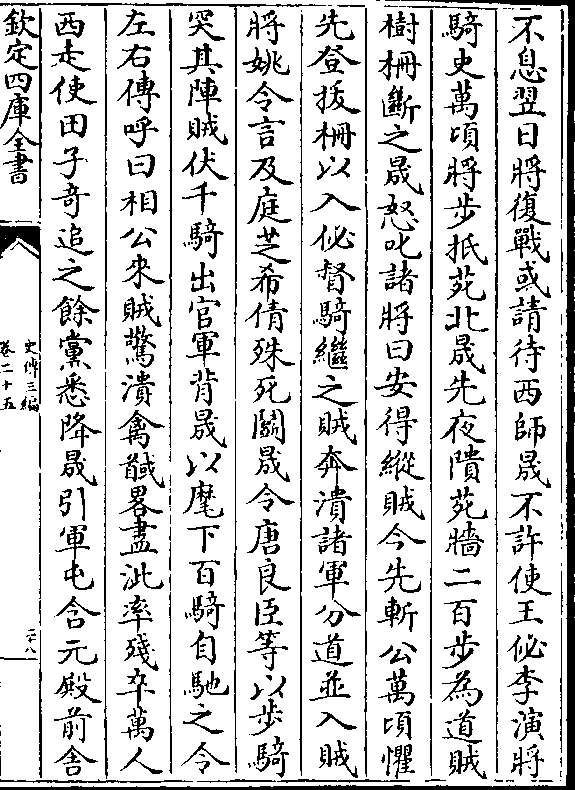 不息翌日將復戰或請待西師晟不許使王佖李演將
騎史萬頃將步抵苑北晟先夜隤苑牆二百步為道賊
樹柵斷之晟怒叱諸將曰安得縱賊今先斬公萬頃懼
先登拔柵以入佖督騎繼之賊奔潰諸軍分道並入賊
將姚令言及庭芝希倩殊死鬬晟令唐良臣等以步騎
突其陣賊伏千騎出官軍背晟以麾下百騎自馳之令
左右傳呼曰相公來賊驚潰禽馘畧盡泚率殘卒萬人
西走使田子奇追之餘黨悉降晟引軍屯含元殿前舍
欽定四庫全書
史傳三編
卷二十五
三十八